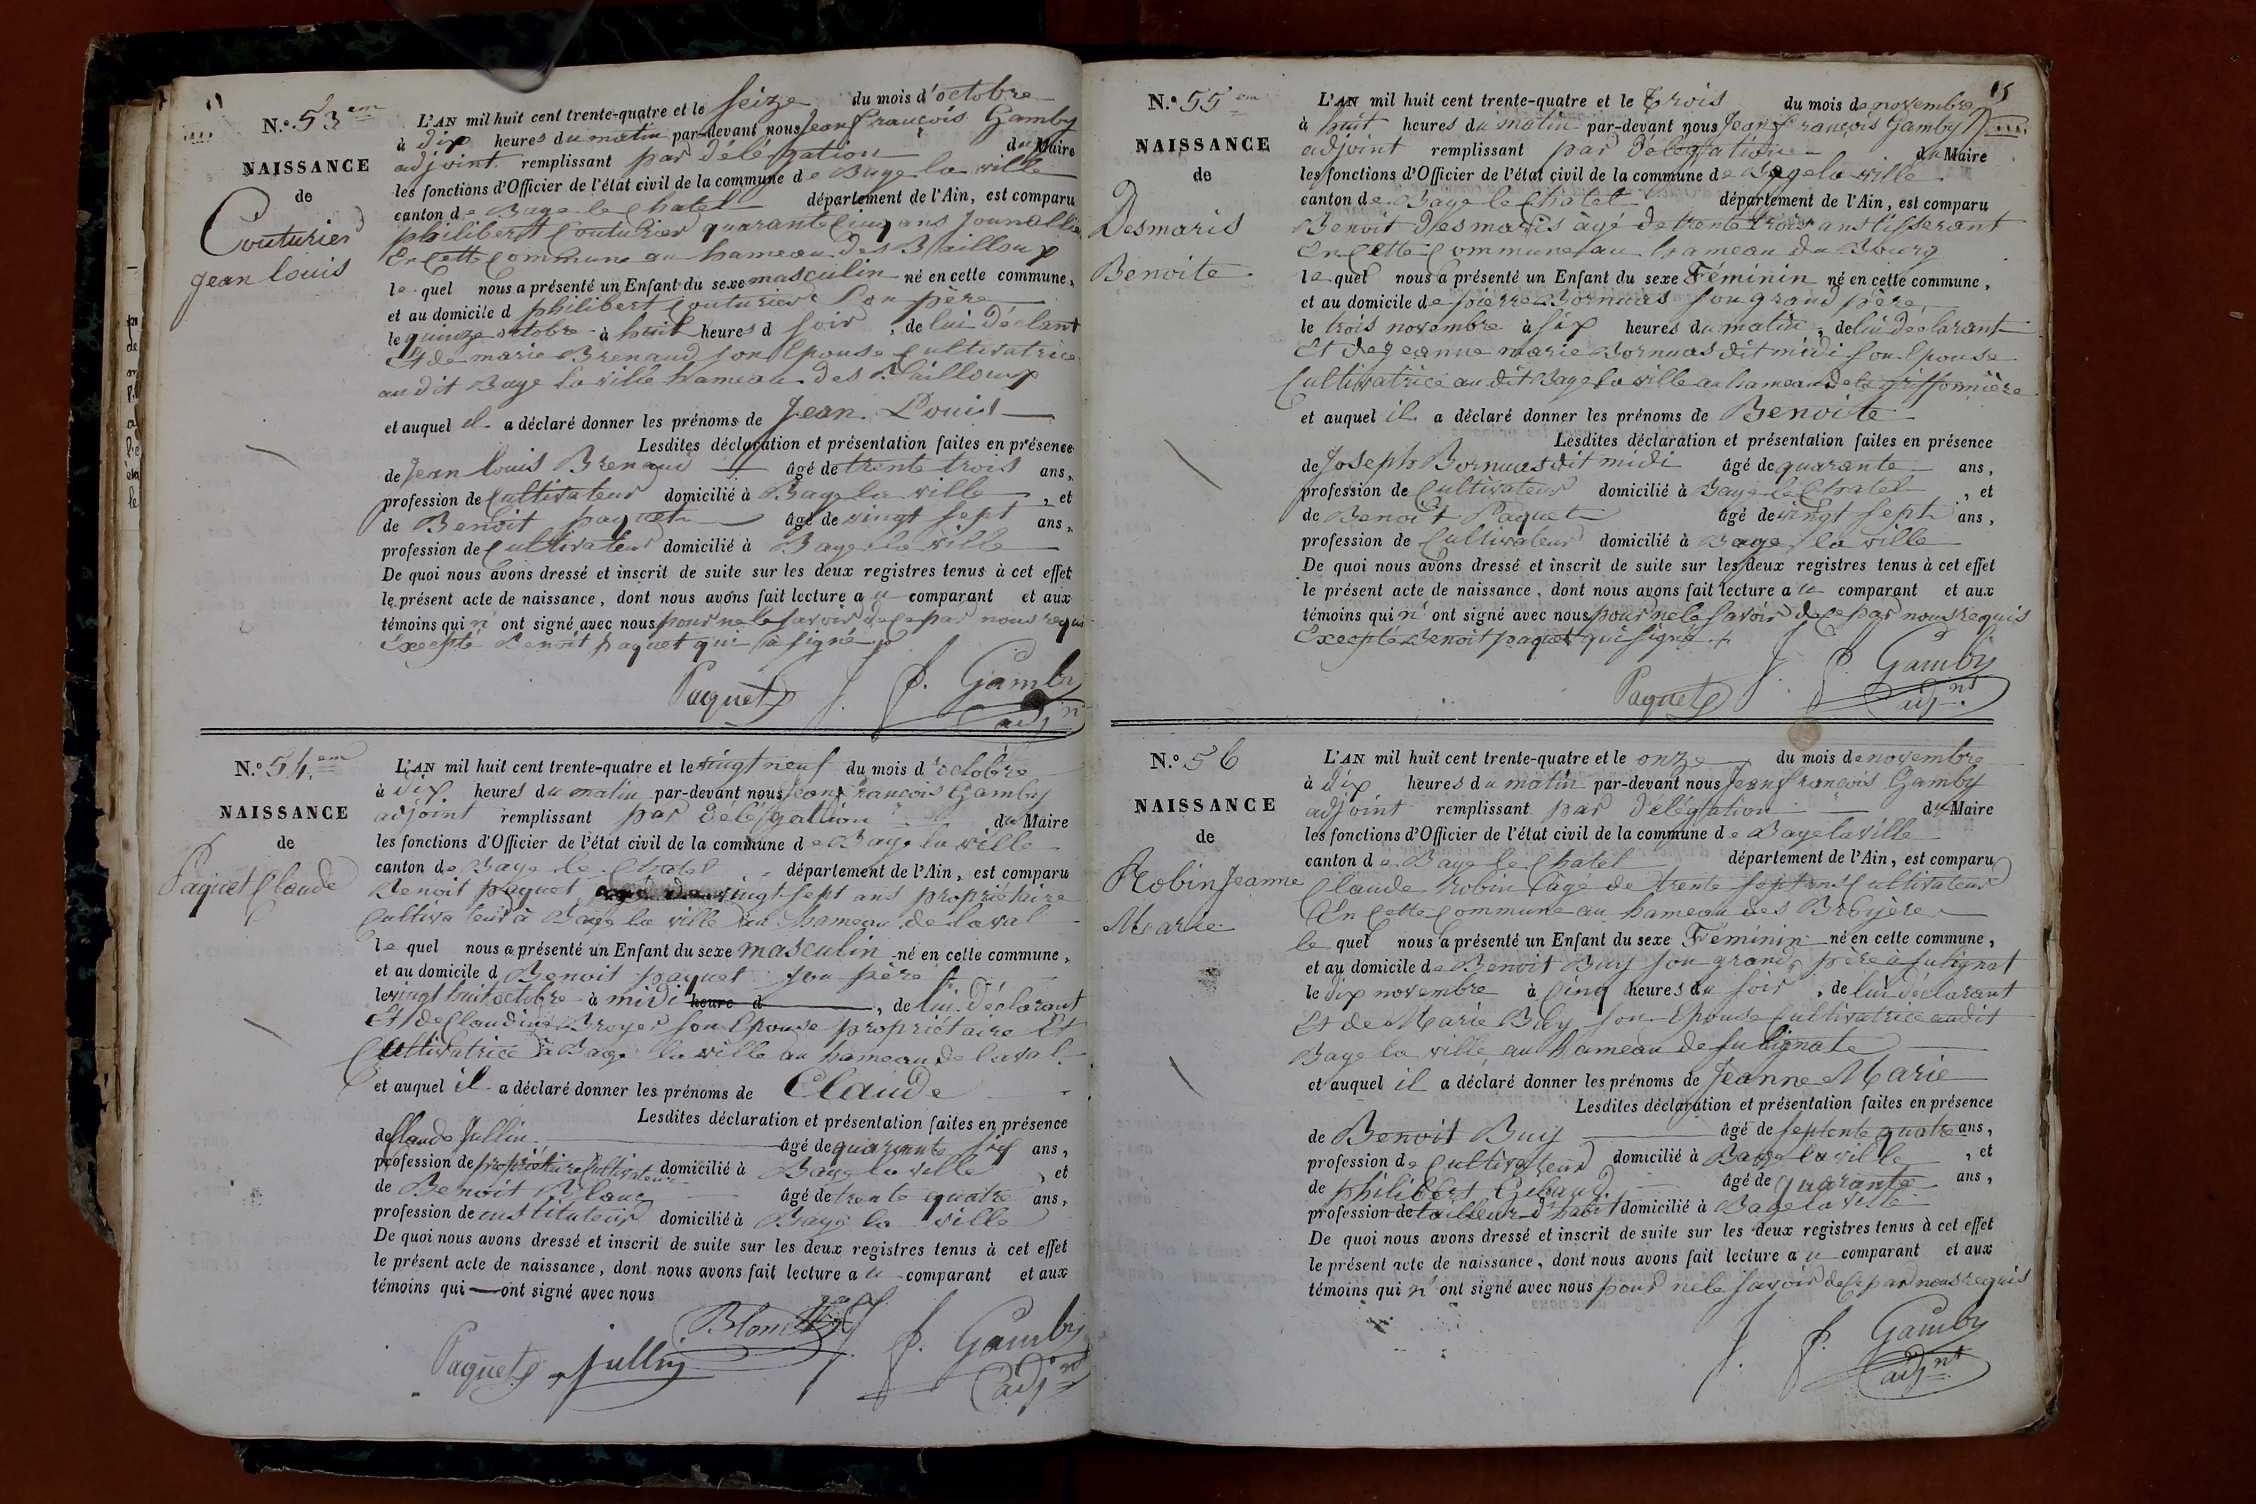 N.o 53em
NAISSANCE
de
Couturier
jean louis
L'AN mil huit cent trente-quatre et le seize du mois d'octobre
à dix heures du matin par-devant nous jean françois Gamby
adjoint remplissant par délégation du Maire
les fonctions d'Officier de l'état civil de la commune de Bage la ville
canton de Bage le Chatel département de l'Ain, est comparu
philibert Couturier quarante cinq ans journallier
En Cette Commune au hameau des Bailloux
le quel nous a présenté un Enfant du sexe masculin né en cette commune,
et au domicile d philibert Couturier son père
le quinze octobre à huit heures d soir, de lui déclarant
Et de marie Brenaud son Epouse Cultivatrice
au dit Bage la ville hameau des Bailloux
et auquel il a déclaré donner les prénoms de Jean Louis
Lesdites déclaration et présentation faites en présence
de Jean louis Brenaud âgé de trente trois ans,
profession de Cultivateur domicilié à Bage la ville, et
de Benoit paquet âgé de vingt sept ans,
profession de Cultivateur domicilié à Bage la ville
De quoi nous avons dressé et inscrit de suite sur les deux registres tenus à cet effet
le présent acte de naissance, dont nous avons fait lecture au comparant et aux
témoins qui n'ont signé avec nous pour ne le savoir de ce par nous requis
Excepté Benoit paquet qui a signé
Paquet J. f. Gamby
adjnt
N.o 54.em
NAISSANCE
de
Paquet Claude
L'AN mil huit cent trente-quatre et le vingt neuf du mois d'octobre
à dix heures du matin par-devant nous jean françois Gamby
adjoint remplissant par délégation du Maire
les fonctions d'Officier de l'état civil de la commune de Bage la ville
canton de Bage le Chatel département de l'Ain, est comparu
Benoit paquet vingt sept ans propriétaire
Cultivateur à Bage la ville au hameau de laval
le quel nous a présenté un Enfant du sexe masculin né en cette commune,
et au domicile d Benoit paquet son père
le vingt huit octobre à midi heure d, de lui déclarant
Et de Claudine Broyer son Epouse propriétaire Et
Cultivatrice à Bage la ville au hameau de laval
et auquel il a déclaré donner les prénoms de Claude
Lesdites déclaration et présentation faites en présence
de Claude Jullin âgé de quarante six ans,
profession de propriétaire Cultivateur domicilié à Bage la ville, et
de Benoit Blanc âgé de trente quatre ans,
profession de instituteur domicilié à Bage la ville
De quoi nous avons dressé et inscrit de suite sur les deux registres tenus à cet effet
le présent acte de naissance, dont nous avons fait lecture au comparant et aux
témoins qui ont signé avec nous
Paquet Jullin Blanc J. f. Gamby
adjnt
15
N.o 55em
NAISSANCE
de
Desmaris
Benoite
L'AN mil huit cent trente-quatre et le trois du mois de novembre
à huit heures du matin par-devant nous Jean françois Gamby
adjoint remplissant par délégation du Maire
les fonctions d'Officier de l'état civil de la commune de Bage la ville
canton de Bage le Chatel département de l'Ain, est comparu
Benoit Desmaris âgé de trente trois ans tisserant
En Cette Commune au hameau du Bourg
le quel nous a présenté un Enfant du sexe Féminin né en cette commune,
et au domicile de pierre Bornuas son grand père
le trois novembre à six heures du matin, de lui déclarant
Et de jeanne marie Bornuas dit midi son Epouse
Cultivatrice au dit Bage la ville au hameau de la griffonnière
et auquel il a déclaré donner les prénoms de Benoite
Lesdites déclaration et présentation faites en présence
de Joseph Bornuas dit midi âgé de quarante ans,
profession de Cultivateur domicilié à Bage le Chatel, et
de Benoit Paquet âgé de vingt sept ans,
profession de Cultivateur domicilié à Bage la ville
De quoi nous avons dressé et inscrit de suite sur les deux registres tenus à cet effet
le présent acte de naissance, dont nous avons fait lecture au comparant et aux
témoins qui n'ont signé avec nous pour ne le savoir de ce par nous requis
Excepté Benoit paquet qui signé
Paquet J. f. Gamby
adjnt
N.o 56
NAISSANCE
de
Robin Jeanne
Marie
L'AN mil huit cent trente-quatre et le onze du mois de novembre
à dix heures du matin par-devant nous Jean françois Gamby
adjoint remplissant par délégation du Maire
les fonctions d'Officier de l'état civil de la commune de Bage la ville
canton de Bage le Chatel département de l'Ain, est comparu
Claude robin âgé de trente sept ans Cultivateur
En Cette Commune au hameau des Bruyère
le quel nous a présenté un Enfant du sexe Féminin né en cette commune,
et au domicile de Benoit Buy son grand père a fulignat
le dix novembre à Cinq heures du soir, de lui déclarant
Et de Marie Buy son Epouse Cultivatrice audit
Bage la ville au hameau de fulignate
et auquel il a déclaré donner les prénoms de Jeanne Marie
Lesdites déclaration et présentation faites en présence
de Benoit Buy âgé de septente quatre ans,
profession de Cultivateur domicilié à Bage la ville, et
de philibert âgé de quarante ans,
profession de tailleur d'habit domicilié à Bage la ville
De quoi nous avons dressé et inscrit de suite sur les deux registres tenus à cet effet
le présent acte de naissance, dont nous avons fait lecture au comparant et aux
témoins qui n'ont signé avec nous pour ne le savoir de ce par nous requis
J. f. Gamby
adjnt